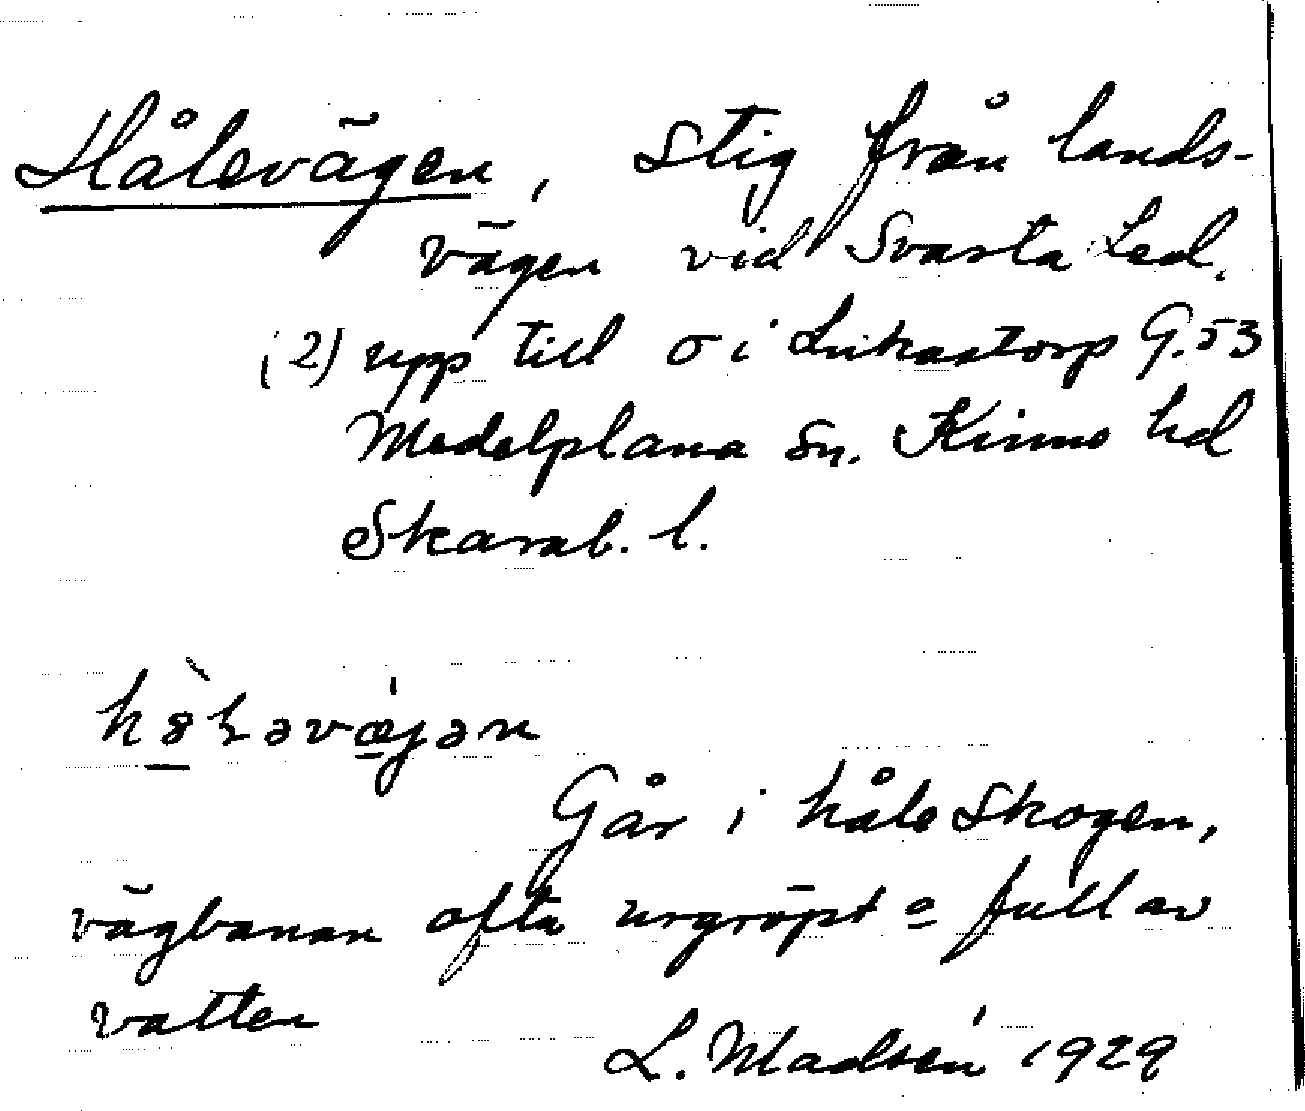 Hålevägen, Stig från lands-
vägen vid Svarta Led.
(2) upp till σ i Lukastorp G.53
Medelplana sn. Kinne hd
Skarab. l.
Går i håle Skogen,
vägbanan ofta urgröpt o full av
vatten
L. Madsén 1929